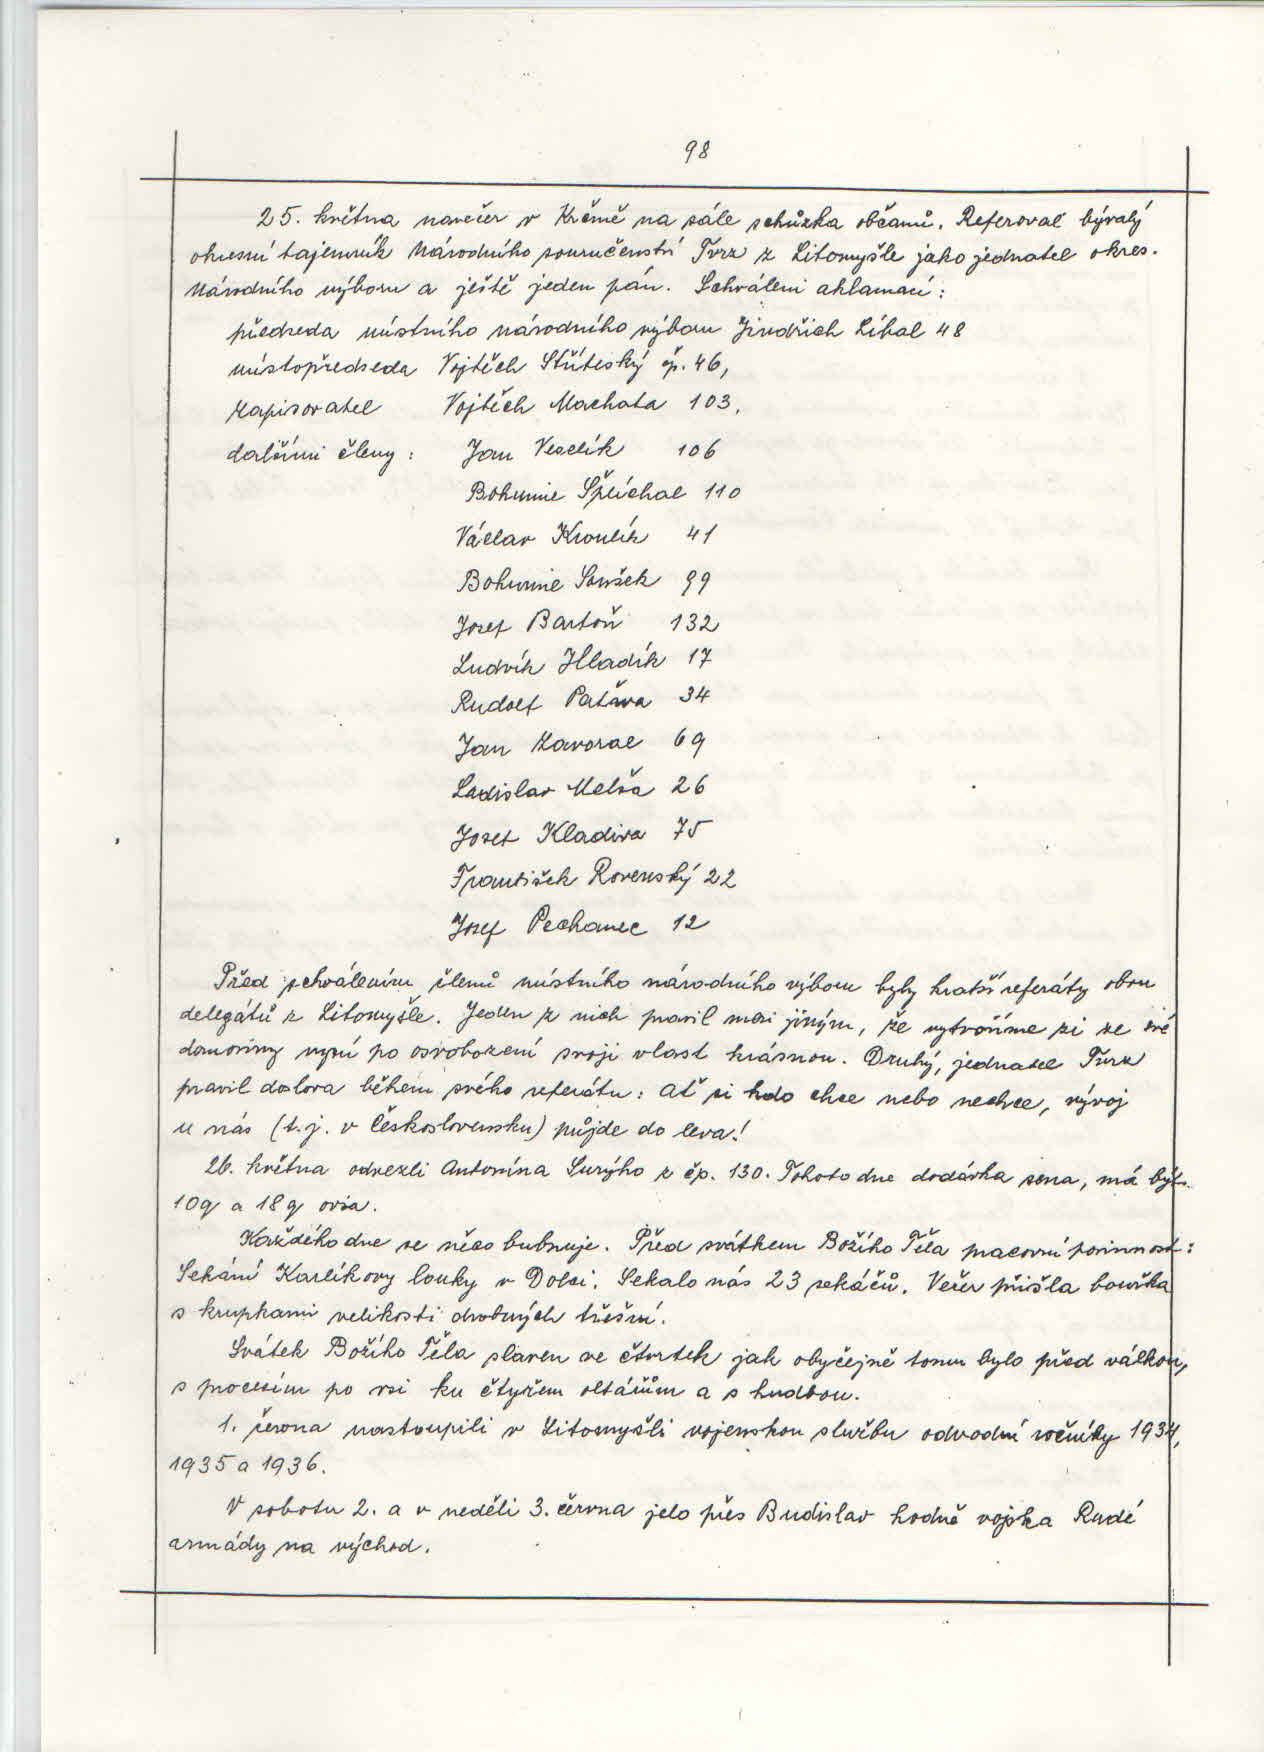 98
25. května navečer v Krčmě na sále schůzka občanů. Referoval bývalý
okresní tajemník Národního souručenství Tvrz z Litomyšle jako jednatel okres.
Národního výboru a ještě jeden pán. Schváleni aklamací:
předseda místního národního výboru Jindřich Líbal 48
místopředseda Vojtěch Stříteský čp. 46,
zapisovatel Vojtěch Machata 103,
dalšími členy: Jan Veselík 106
Bohumil Šplíchal 110
Václav Kroulík 41
Bohumil Soušek 99
Josef Bartoň 132
Ludvík Hladík 17
Rudolf Patava 34
Jan Zavoral 69
Ladislav Melša 26
Josef Kladiva 75
František Rovenský 22
Josef Pechanec 12
Před schválením členů místního národního výboru byly kratší referáty obou
delegátů z Litomyšle. Jeden z nich pravil mezi jiným, že vytvoříme si ze své
domoviny nyní po osvobození svoji vlast krásnou. Druhý, jednatel Tvrz
pravil doslova během svého referátu: Ať si kdo chce nebo nechce, vývoj
u nás (t.j. v Československu) půjde do leva!
26. května odvezli Antonína Surýho z čp. 130. Tohoto dne dodávka sena, má být
10q a 18q ovsa.
Každého dne se něco bubnuje. Před svátkem Božího Těla pracovní povinnost:
Sekání Karlíkovy louky v Dolci. Sekalo nás 23 sekáčů. Večer přišla bouřka
s krupkami velikosti drobných třešní.
Svátek Božího Těla slaven ve čtvrtek jak obyčejně tomu bylo před válkou,
s procesím po vsi ku čtyřem oltářům a s hudbou.
1. června nastoupili v Litomyšli vojenskou službu odvodní ročníky 1934,
1935 a 1936.
V sobotu 2. a v neděli 3. června jelo přes Budislav hodně vojska Rudé
armády na východ.